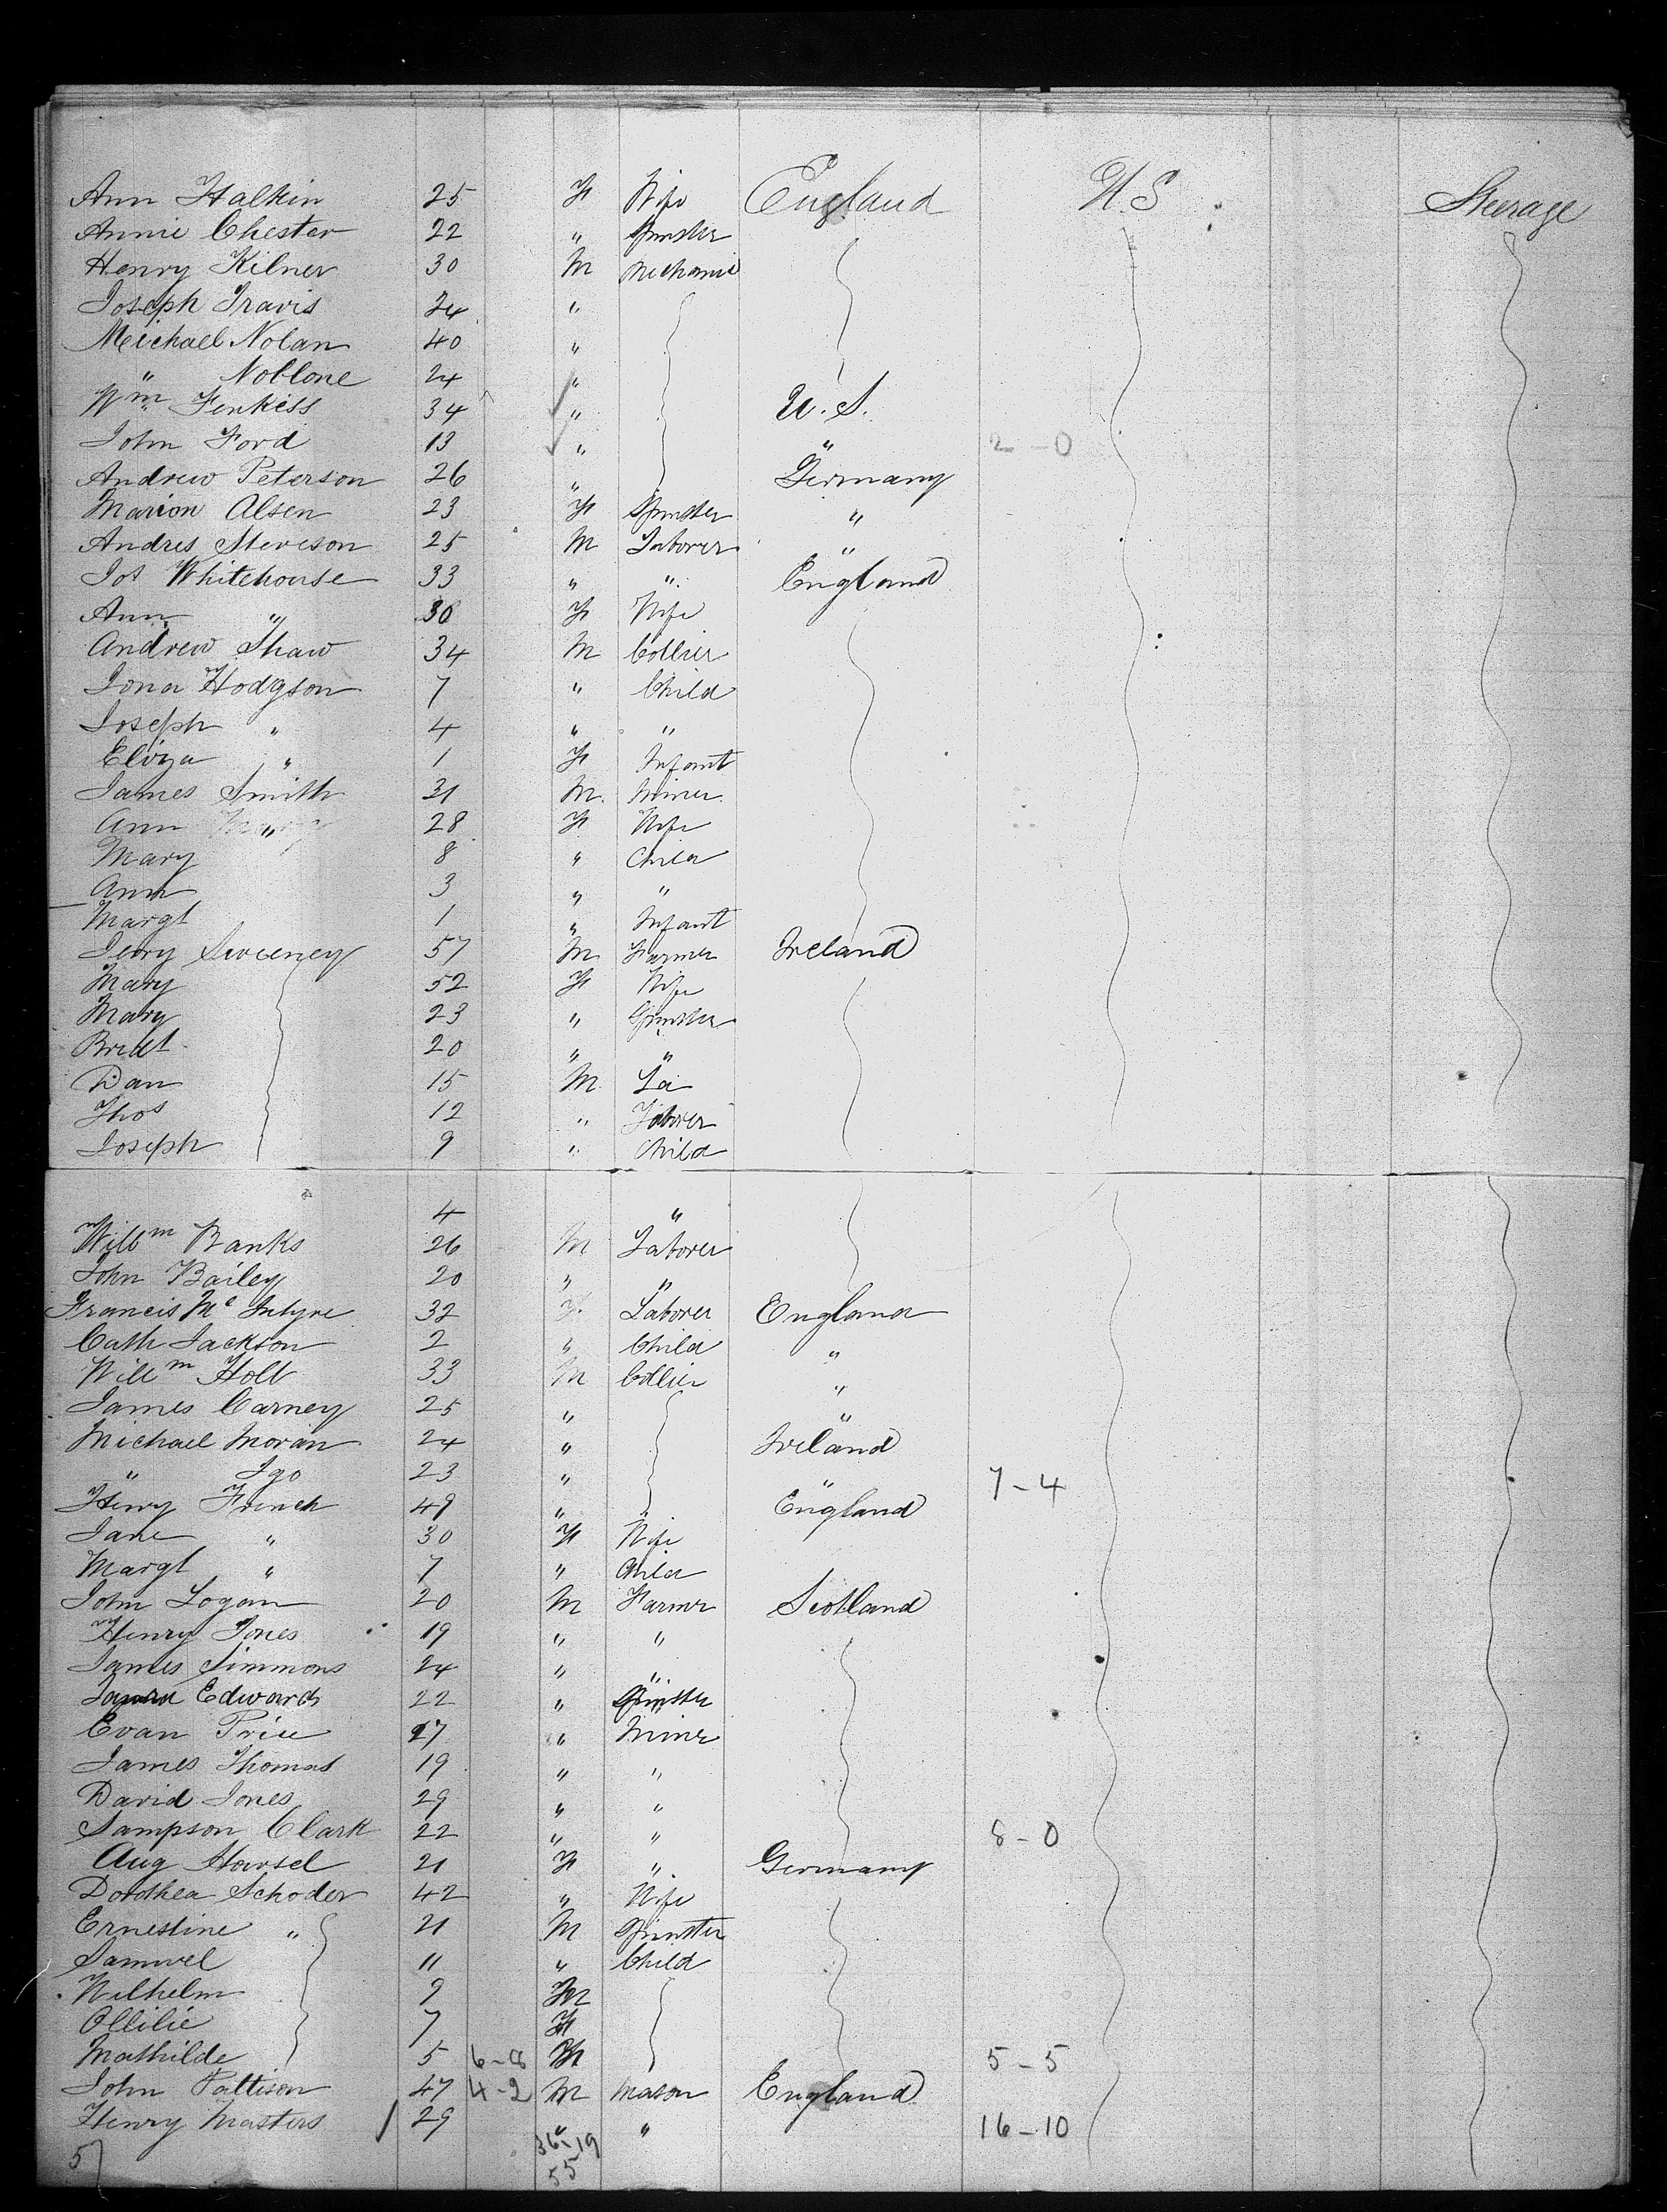 Ann Halkin 25 F Wife England U.S. Steerage
Annie Chester 22 " Spinster
Henry Kilner 30 M Mechanic
Joseph Travis 24 "
Meichael Nolan 40 "
" Noblone 24 "
Wm Fenkiss 34 " U.S.
John Ford 13 " " 2-0
Andrew Peterson 26 " Germany
Marion Alsen 23 F Spinster "
Andres Steveson 25 M Laborer "
Jos Whitehouse 33 " " England
Ann " 30 F Wife
Andrew Shaw 34 M Collier
Jona Hodgson 7 " Child
Joseph " 4 " "
Eliza " 1 F Infant
James Smith 31 M Miner
Ann " 28 F Wife
Mary 8 " Child
Ann 3 " "
Margt 1 " Infant
Jerry Sweeney 57 M Farmer Ireland
Mary 52 F Wife
Mary 23 " Spinster
Bridt 20 " "
Dan 15 M La
Thos 12 " Laborer
Joseph 9 " Child
4 "
Willm Banks 26 M Laborer
John Bailey 20 " "
Francis Mc Intyre 32 F Laborer England
Cath Jackson 2 " Child "
Willm Holt 33 M Collier "
James Carney 25 " "
Michael Moran 24 " Ireland
" Igo 23 " " 7-4
Henry French 49 " " England
Jane " 30 F Wife
Margt " 7 " Child
John Logan 20 M Farmr Scotland
Henry Jones 19 " "
James Simmons 24 " "
Edwards 22 " Spinster
Evan Price 27 " Miner
James Thomas 19 " "
David Jones 29 " "
Sampson Clark 22 " " 8-0
Aug Stowsel 21 F " Germany
Dorothea Schoder 42 " Wife
Ernestine " 21 M Spinster
Samuel 11 " Child
Wilhelm 9 M
Ollilie 7 F
Mathilde 5 6-8 5-5
John Pattison 47 4-2 M Mason England
Henry Masters 29 " " 16-10
57 36-19
55